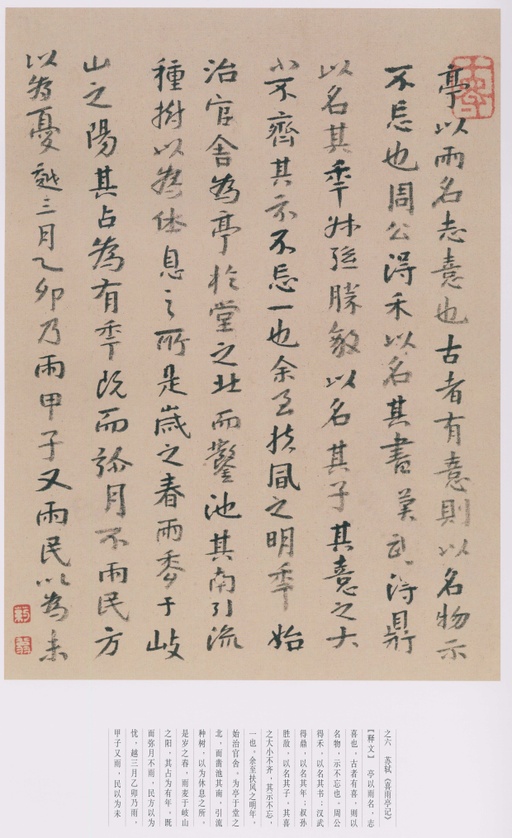 亭以雨名志憙也古者有憙則以名物示
不忘也周公得禾以名其書漢武得鼎
以名其年叔孫勝敵以名其子其憙之大
小不齊其示不忘一也余至扶風之明年始
治官舍為亭於堂之北而鑿池其南引流
種樹以為休息之所是歲之春雨麥于岐
山之陽其占為有年既而彌月不雨民方
以為憂越三月乙卯乃雨甲子又雨民以為未
之六 苏轼《喜雨亭记》
【释文】 亭以雨名，志
喜也。古者有喜，则以
名物，示不忘也。周公
得禾，以名其书；汉武
得鼎，以名其年；叔孙
胜敌，以名其子。其喜
之大小不齐，其示不忘，
一也。余至扶风之明年，
始治官舍，为亭于堂之
北，而凿池其南，引流
种树，以为休息之所。
是岁之春，雨麦于岐山
之阳，其占为有年。既
而弥月不雨，民方以为
忧，越三月乙卯乃雨，
甲子又雨，民以为未